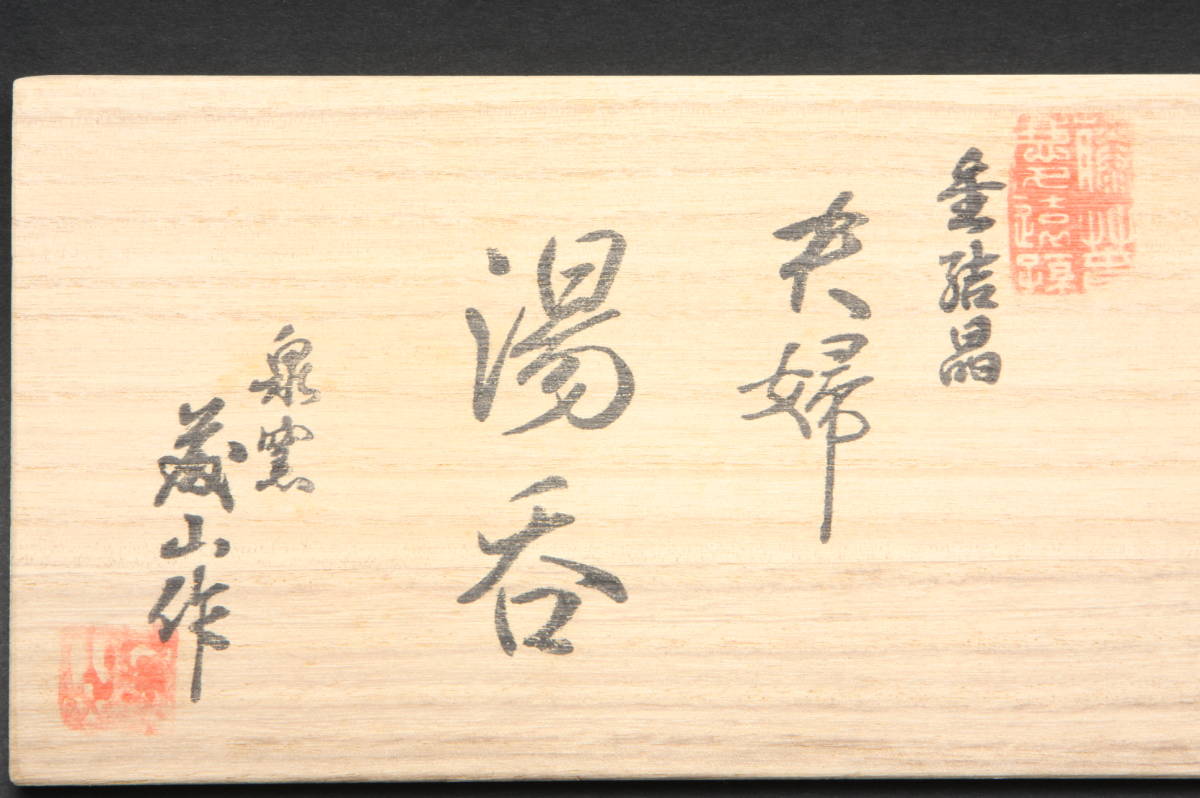 金結晶
夫婦
湯呑
泉窯
茂山作